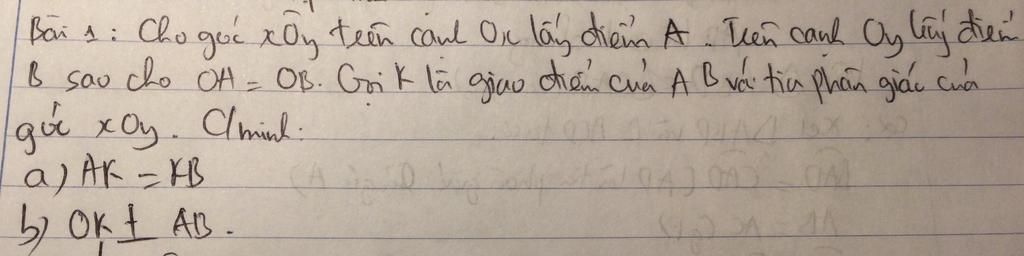 Bài 1: Cho góc xOy trên cạnh Ox lấy điểm A. Trên cạnh Oy lấy điểm
B sao cho OA = OB. Gọi K là giao điểm của AB và tia phân giác của
góc xOy. C/minh:
a) AK = KB
b) OK ⊥ AB.